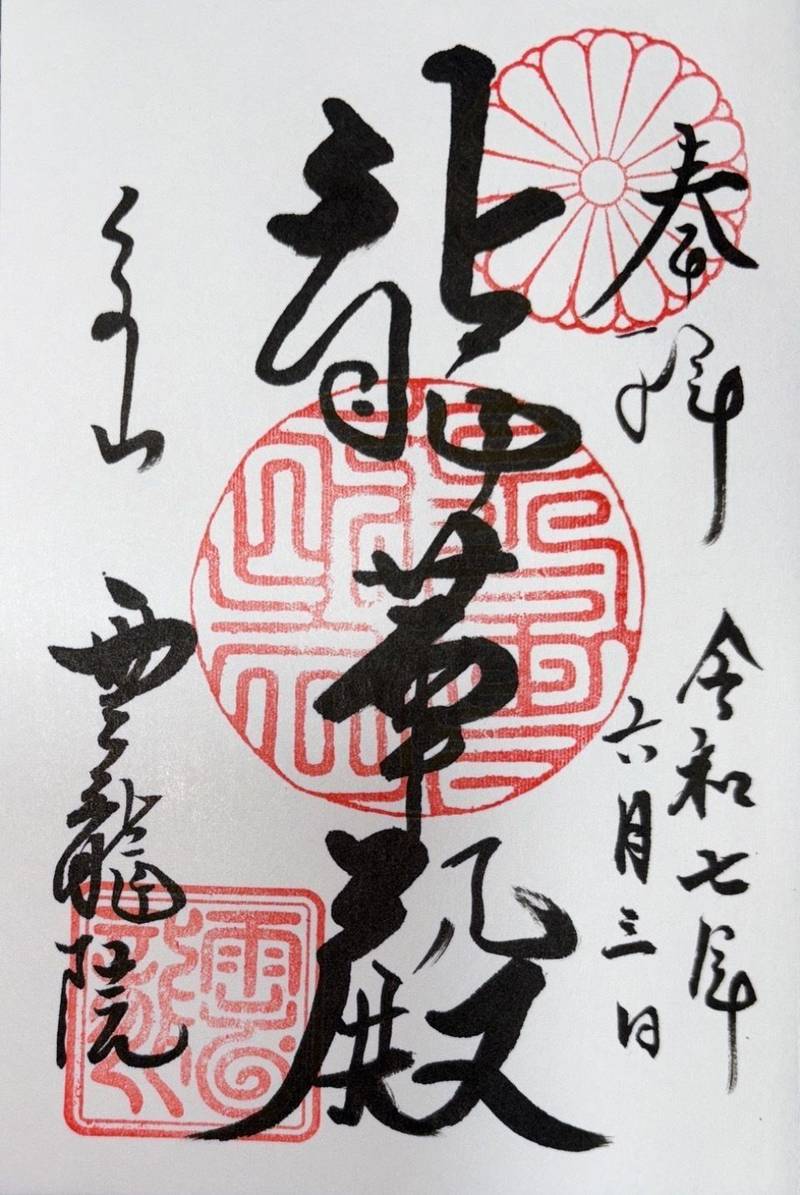 奉拝
令和七年
六月三日
龍華殿
泉山
雲龍院